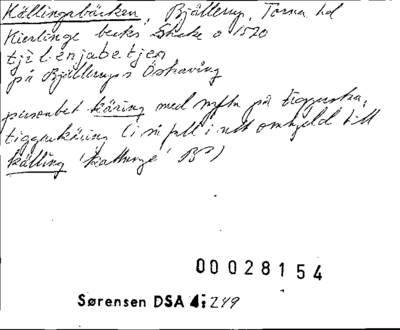 Källingabäcken, Bjällerup, Torna hd
Kierlinge becks 1570
tjɛlenjabetjen
på Bjällerups Östraving
personbet. käring med syfte på tiggerska,
tiggarkäring (i så fall i
källing 'kattunge' BP)
00028154
Sørensen DSA 4: 249